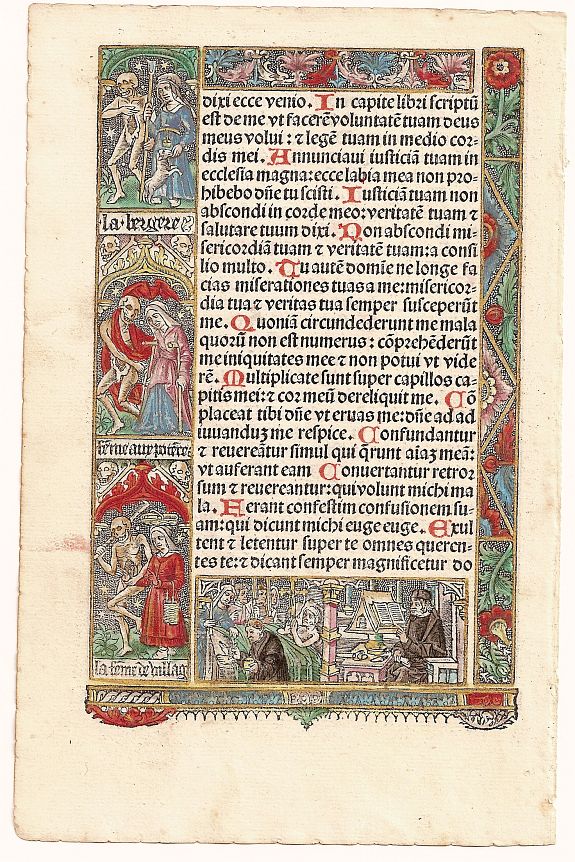 dixi ecce venio. In capite libri scriptū
est de me vt facerē voluntatē tuam deus
meus volui : ⁊ legē tuam in medio cor⸗
dis mei. Annunciaui iusticiā tuam in
ecclesia magna: ecce labia mea non pro⸗
hibebo dñe tu scisti. Iusticiā tuam non
abscondi in corde meo: veritatē tuam ⁊
salutare tuum dixi. Non abscondi mi⸗
sericordiā tuam ⁊ veritatē tuam: a consi
lio multo. Tu autē domīe ne longe fa
cias miserationes tuas a me: misericor⸗
dia tua ⁊ veritas tua semper susceperūt
me. Quoniā circundederunt me mala
quorū non est numerus : cōprehēderūt
me iniquitates mee ⁊ non potui vt vide
rē. Multiplicate sunt super capillos ca⸗
pitis mei: ⁊ cor meū dereliquit me. Cō
placeat tibi dñe vt eruas me: dñe ad ad
iuuanduꝫ me respice. Confundantur
⁊ reuereātur simul qui q̄runt aīaꝫ meā:
vt auferant eam Conuertantur retror
sum ⁊ reuereantur: qui volunt michi ma
la. Ferant confestim confusionem su⸗
am: qui dicunt michi euge euge. Exul
tent ⁊ letentur super te omnes queren⸗
tes te: ⁊ dicant semper magnificetur do
la bergere
fēme aux potēce
la fēme de vilag